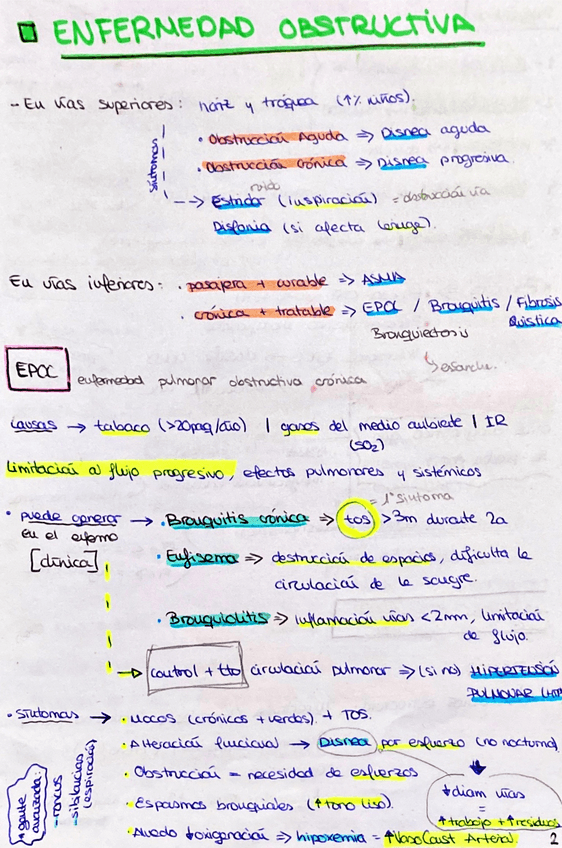 ENFERMEDAD OBSTRUCTIVA
- En vías superiores: nariz y tráquea (↑% niños).
síntomas
• Obstrucción Aguda => Disnea aguda
• Obstrucción crónica => Disnea progresiva.
ruido
--> Estridor (inspiración) = obstrucción vía
Disfonia (si afecta laringe).
En vías inferiores: • pasajera + curable => ASMA
• crónica + tratable => EPOC / Bronquitis / Fibrosis Quística
Bronquiectasis
↳ esanche.
EPOC enfermedad pulmonar obstructiva crónica
causas → tabaco (>20paq/año) | gases del medio aubiente | IR
(SO2)
limitación al flujo progresivo, efectos pulmonares y sistémicos
= 1º síntoma
• puede generar → • Bronquitis crónica => tos >3m durante 2a
en el enfermo
[clínica]
• Enfisema => destrucción de espacios, dificulta la
circulación de la sangre.
• Bronquiolitis => inflamación vías <2mm, limitación
de flujo.
control + tto circulación pulmonar => (si no) HIPERTENSIÓN
PULMONAR (HTP
• síntomas → • Mocos (crónicos + verdes) + TOS.
• Alteración funcional → Disnea por esfuerzo (no nocturna)
• Obstrucción = necesidad de esfuerzos
↓ diam vías
=
↑ trabajo + ↑ residuos
• Espasmos bronquiales (↑ tono liso).
+ gente avanzada:
- roncus
- sibilancias (espiración)
↓ oxigenación => hipoxemia = ↑ Vaso Const Arterial.
2